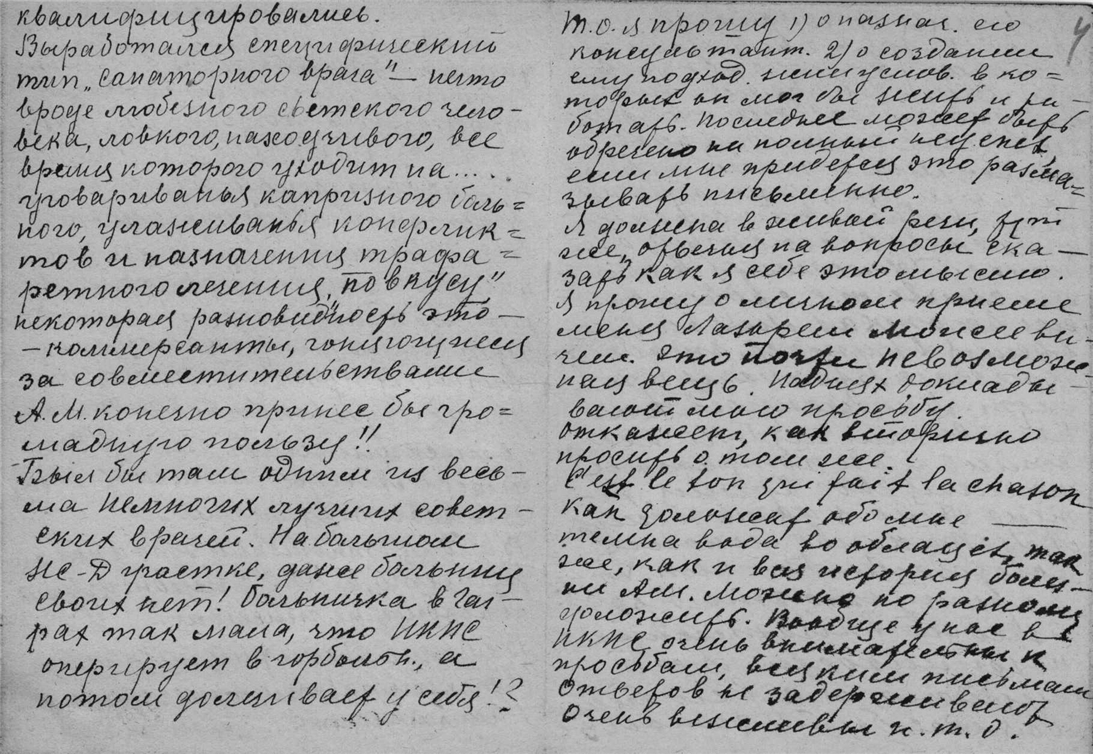 квалифицировались.
Выработался специфический
тип „санаторного врага" — нечто
вроде любезного светского чело-
века, ловкого, находчивого, все
время которого уходит на....
уговариванья капризного боль=
ного, улаживанья конфлик=
тов и назначения трафа=
ретного лечения „по вкусу"
некоторая разновидность это —
— коммерсанты, гонящиеся
за совместительствами
А.М. конечно принес бы гро=
мадную пользу!!
Был бы там одним из весь-
ма немногих лучших совет-
ских врачей. На большом
же-д участке, даже больниц
своих нет! Больничка в Гаг-
рах так мала, что НКПС
оперирует в горбольн., а
потом долечивает у себя!?
4
Т.О. я прошу 1) о назнач. его
консультант. 2) о создании
ему подход. жил услов. в ко=
торых он мог бы жить и ра-
ботать. Последнее может быть
обречено на полный неуспех
если мне придется это разма=
зывать письменно.
Я должна в живой речи, тут
же, отвечая на вопросы ска —
зать как я себе это мыслю.
Я прошу о личном приеме
меня Лазарем Моисееви-
чем. Это почти невозмож-
ная вещь. На днях доклады-
вают мою просьбу.
откажет, как вторично
просить о том же.
C'est le ton qui fait la chason
Как доложат обо мне —
темна вода во облацех, так
же, как и вся история болез-
ни А.М. Можно по разному
доложить. Вообще у нас в
НКПС очень внимательны к
просьбам, всяким письмам
ответов не задерживают
Очень вежливы и т. д.!